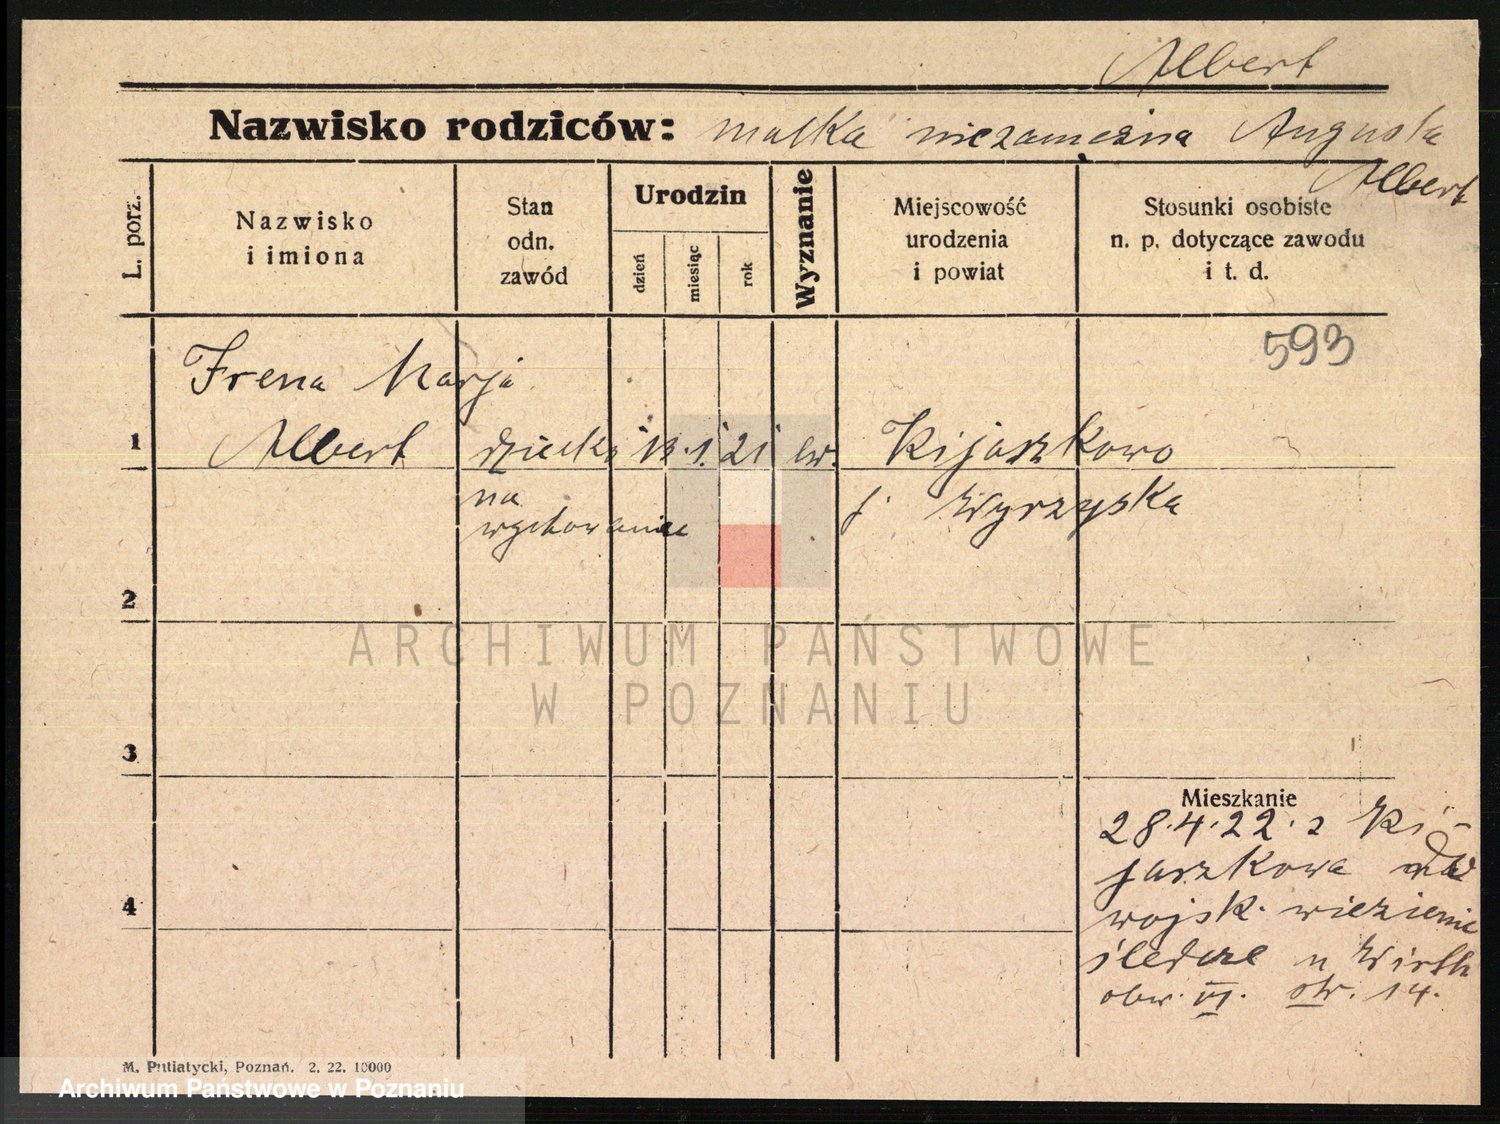 Albert
Nazwisko rodziców: matka niezamężna Augusta
Albert
L. porz.
Nazwisko
i imiona
Stan
odn.
zawód
Urodzin
dzień
miesiąc
rok
Wyznanie
Miejscowość
urodzenia
i powiat
Stosunki osobiste
n. p. dotyczące zawodu
i t. d.
593
Irena Marja
1 Albert dziecko 13.1.21 ew. Kijaszkowo
na wychowanie
Wyrzyska
2
ARCHIWUM PAŃSTWOWE
W POZNANIU
3
Mieszkanie
28.4.22. z Ki-
jaszkowa
4
wojsk. wiezienie
śledcze u Wirth
obw. VI. str. 14.
M. Putiatycki, Poznań. 2. 22. 10000
Archiwum Państwowe w Poznaniu